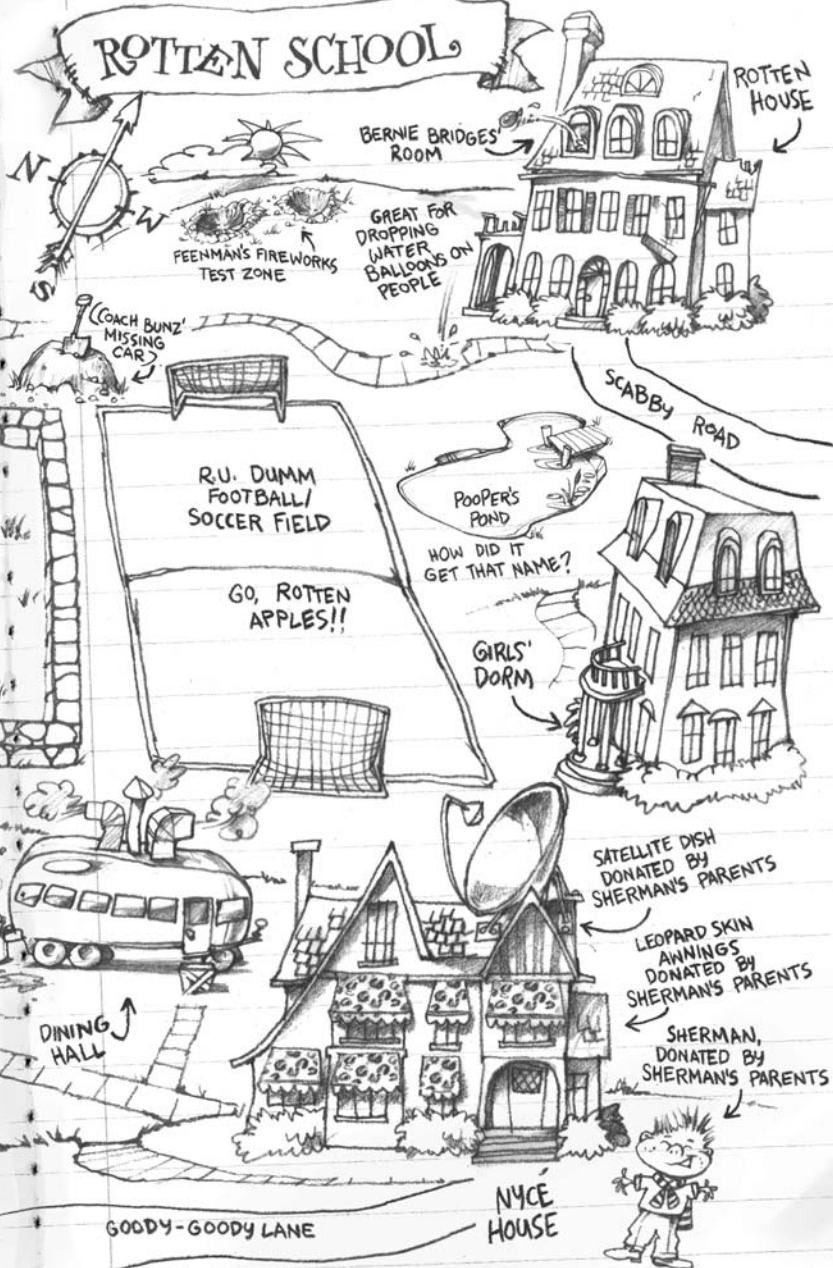 ROTTEN SCHOOL
N
W
S
BERNIE BRIDGES'
ROOM
ROTTEN
HOUSE
FEENMAN'S FIREWORKS
TEST ZONE
GREAT FOR
DROPPING
WATER
BALLOONS ON
PEOPLE
(COACH BUNZ'
MISSING
CAR)
SCABBY ROAD
R.U. DUMM
FOOTBALL/
SOCCER FIELD
GO, ROTTEN
APPLES!!
POOPER'S
POND
HOW DID IT
GET THAT NAME?
GIRLS'
DORM
SATELLITE DISH
DONATED BY
SHERMAN'S PARENTS
LEOPARD SKIN
AWNINGS
DONATED BY
SHERMAN'S PARENTS
DINING
HALL
SHERMAN,
DONATED BY
SHERMAN'S PARENTS
NYCE
HOUSE
GOODY-GOODY LANE